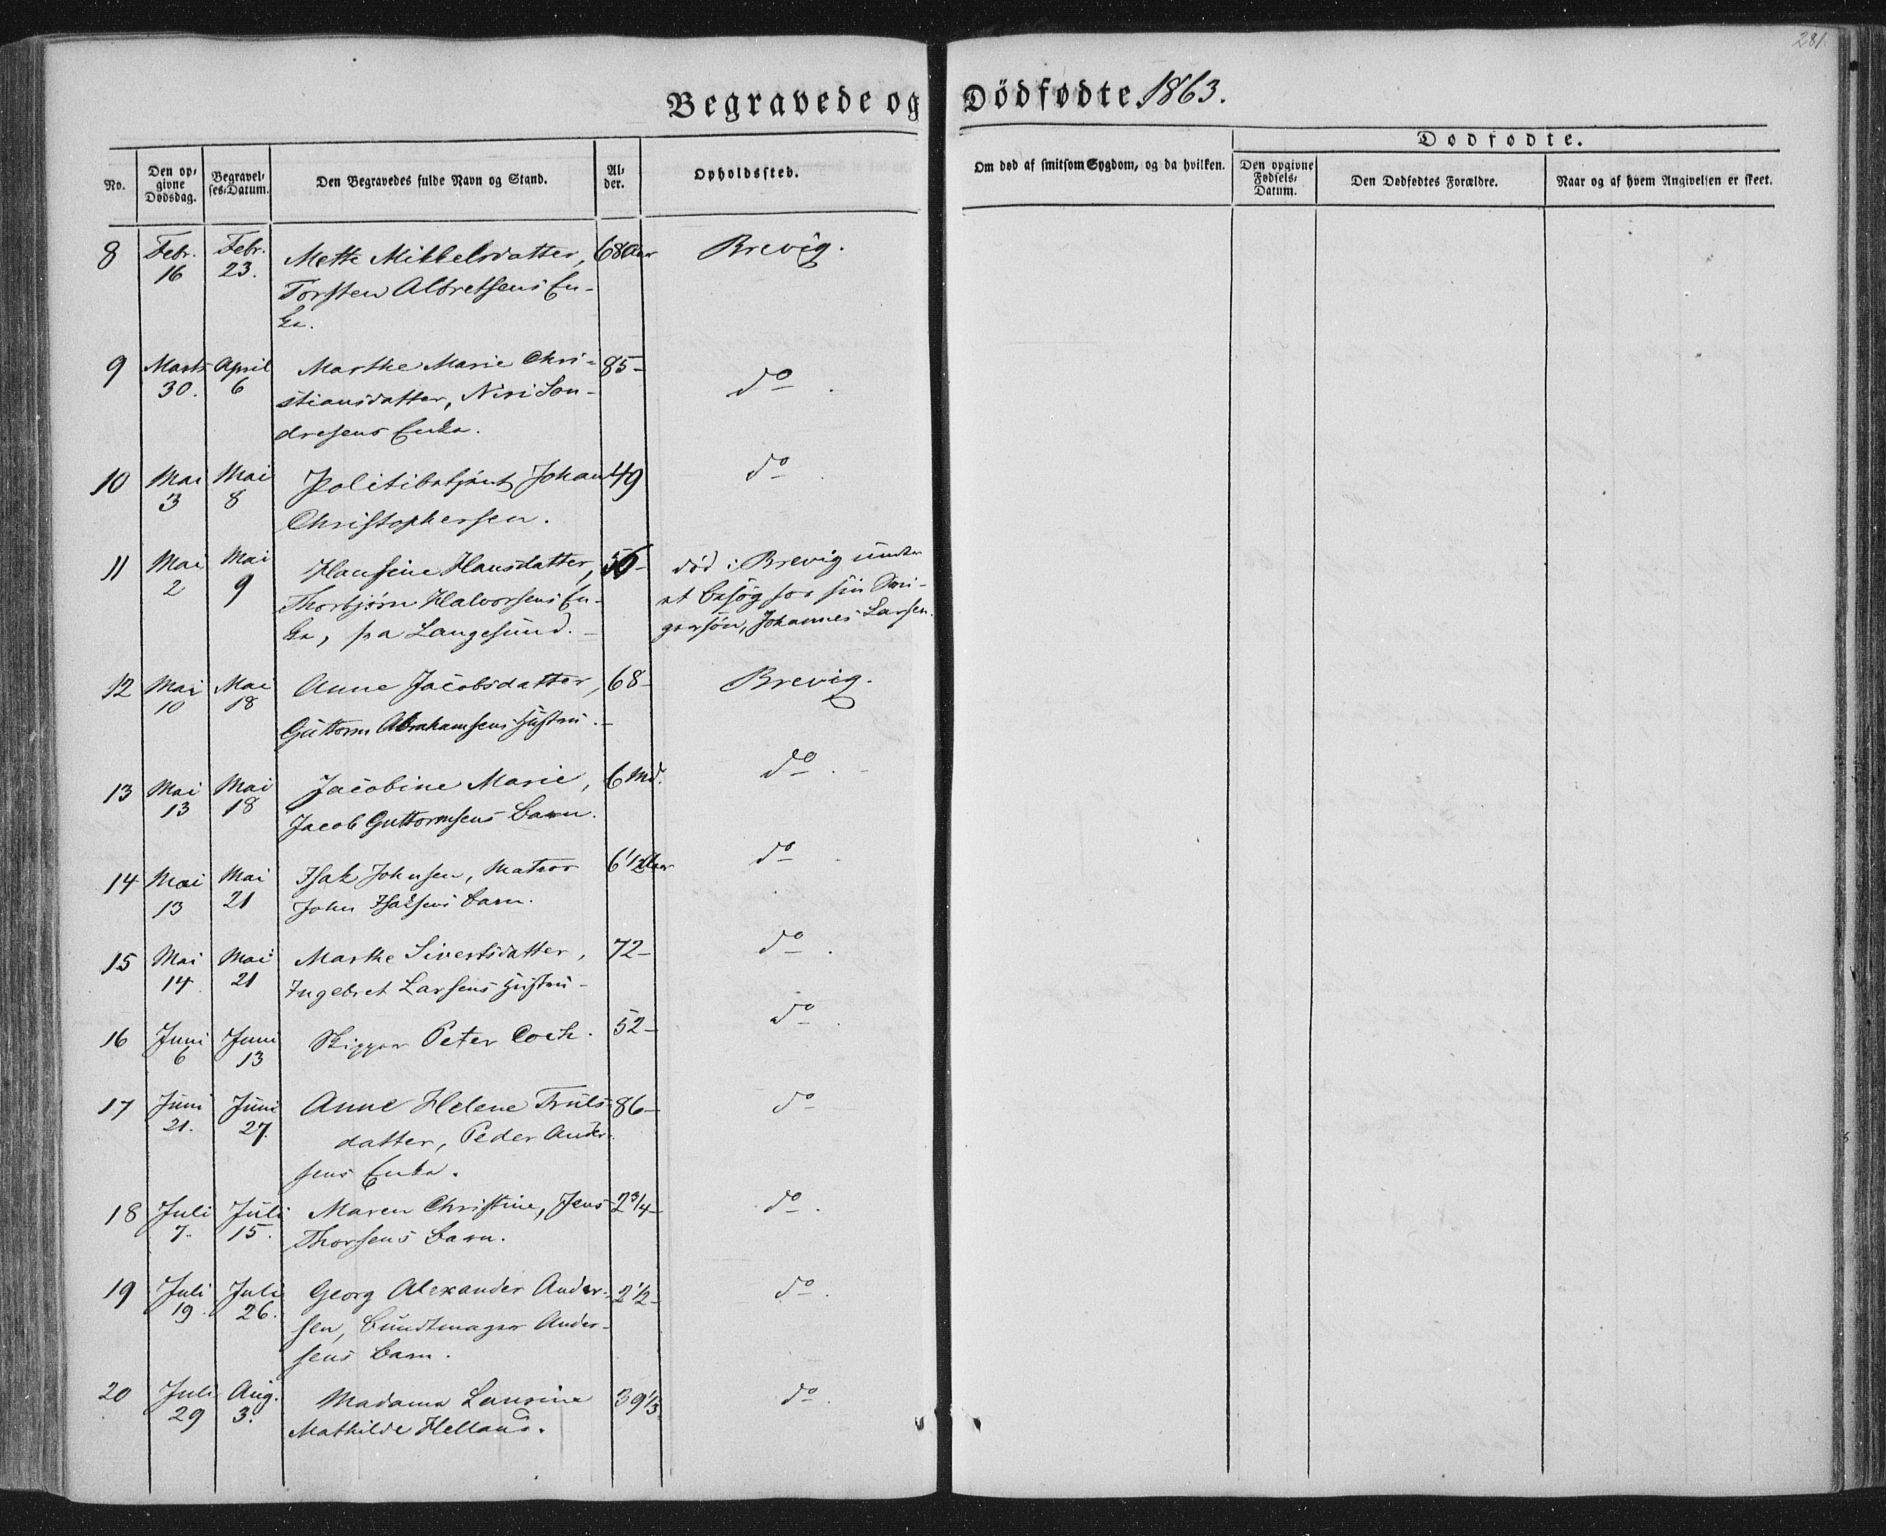 281.
Begravede og Dödfødte 1863.
No.
Den opgivne Dødsdag.
Begravelses-Datum.
Den Begravedes fulde Navn og Stand.
Alder.
Opholdssted.
Om død af smitsom Sygdom, og da hvilken.
Dødfødte.
Den opgivne Fødsels-Datum.
Den Dødfødtes Forældre.
Naar og af hvem Angivelsen er skeet.
8 Febr. 16 Febr. 23. Mette Mikkelsdatter, 68 Aar Brevig.
Torsten Albretsens En-
ke.
9 Marts 30. April 6 Marthe Marie Chri- 85- do
stiansdatter, Niri Son-
dresens Enke.
10 Mai 3 Mai 8 Politibetjent Johan 49 do
Christophersen.
11 Mai 2 Mai 9 Hansine Hansdatter, 56- død i Brevig under
Thorbjørn Halvorsens En- et besøg hos sin Svi-
ke, fra Langesund. gersøn, Johannes Larsen.
12 Mai 10 Mai 18 Anne Jacobsdatter, 68- Brevig.
Guttorm Abrahamsens Hustru.
13 Mai 13 Mai 18 Jacobine Marie, 6 Md. do
Jacob Guttormsens Barn.
14 Mai 13 Mai 21 Isak Johnsen, Matros 6 1/2 Aar do
John Isaksens Barn.
15 Mai 14 Mai 21 Marthe Sivertsdatter, 72- do
Ingebret Larsens Hustru
16 Juni 6 Juni 13 Skipper Peter Coch. 52- do
17 Juni 21. Juni 27. Anne Helene Truls- 86- do
datter, Peder Ander-
sens Enke.
18 Juli 7. Juli 15. Maren Christine, Jens 2 3/4- do
Thorsens Barn.
19 Juli 19. Juli 26. Georg Alexander Ander- 2 1/2- do
sen, Bundtmager Ander-
sens Barn.
20 Juli 29 Aug. 3. Madame Laurine 39 1/3 do
Mathilde Helland.